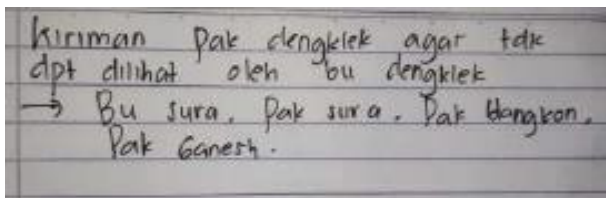 Kiriman Pak dengklek agar tdk
dpt dilihat oleh bu dengklek
→ Bu sura, Pak sura, Pak Blangkon,
Pak Ganesh.